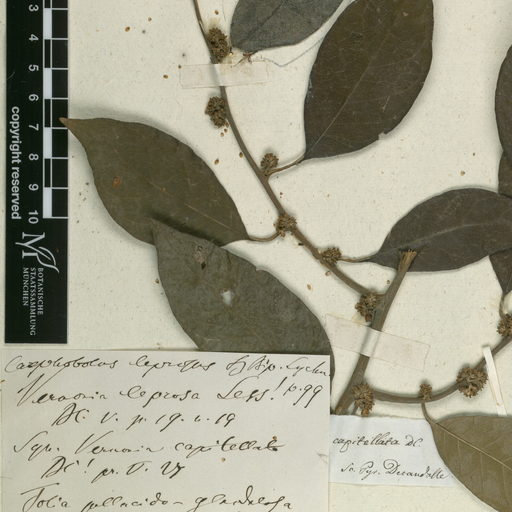 3
4
5
6
7
8
9
10
copyright reserved
BOTANISCHE
STAATSSAMMLUNG
MÜNCHEN
leprosus Sz Bip.
Vernonia leprosa Less! p. 99
DC. V. p. 19. n. 19
Syn. Vernonia capitellata
DC! pr. V. 27
Folia pellucido-glandulosa
capitellata DC